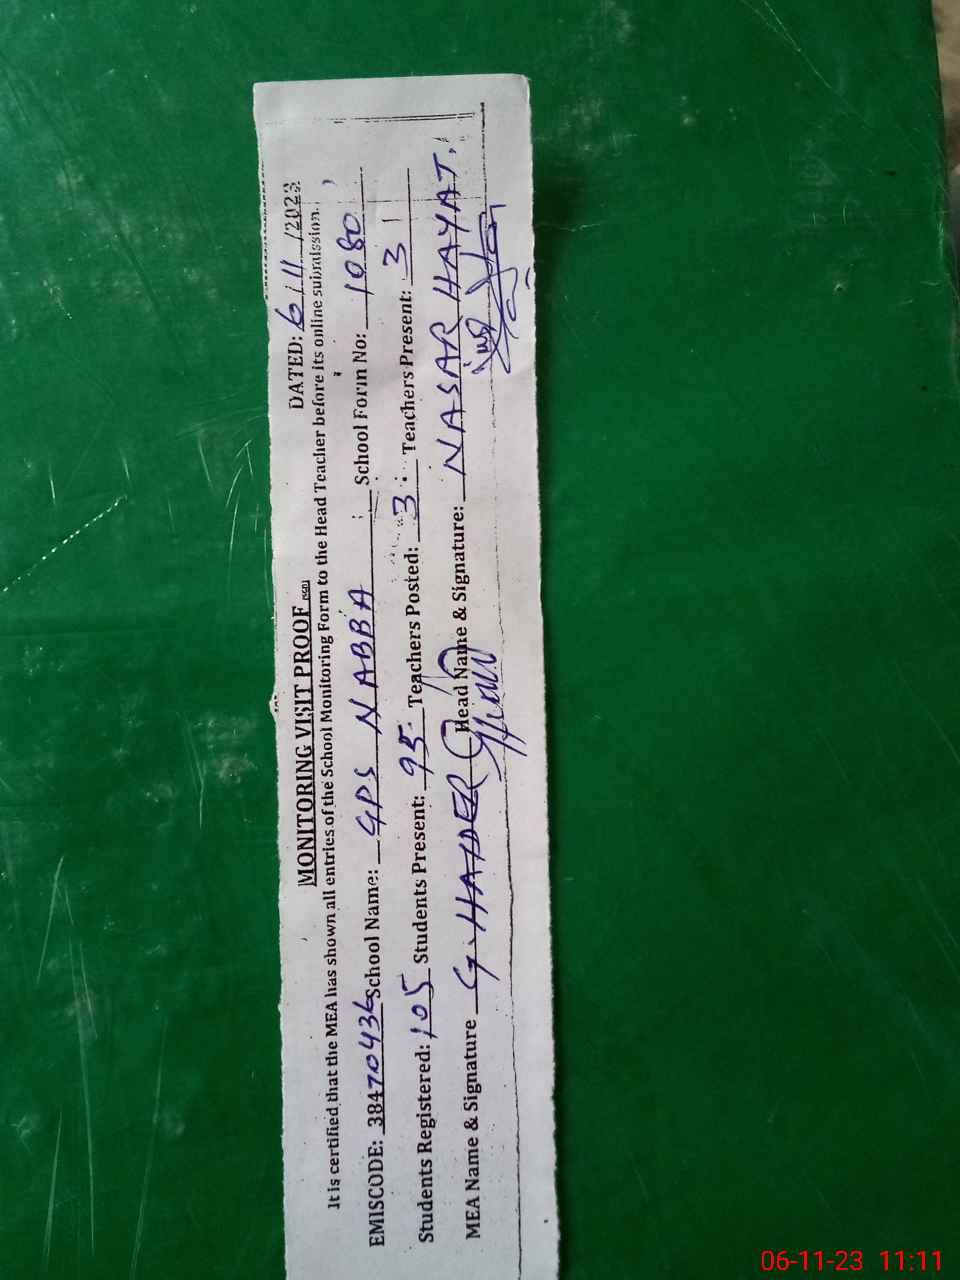 MONITORING VISIT PROOF
DATED: 6/11/2023
It is certified that the MEA has shown all entries of the School Monitoring Form to the Head Teacher before its online submission.
EMISCODE: 38470436 School Name: GPS NABBA School Form No: 1080
Students Registered: 105 Students Present: 95 Teachers Posted: 3 Teachers Present: 3
MEA Name & Signature G. HAIDER Head Name & Signature: NASAR HAYAT.
06-11-23 11:11